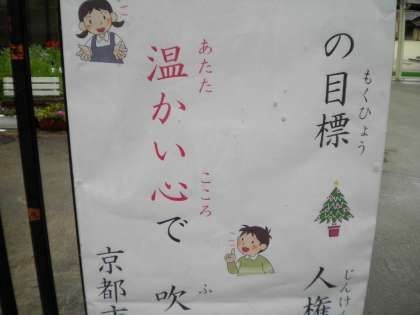 の目標 人権
もくひょう じんけん
温かい心で 吹
あたた こころ ふ
京都市